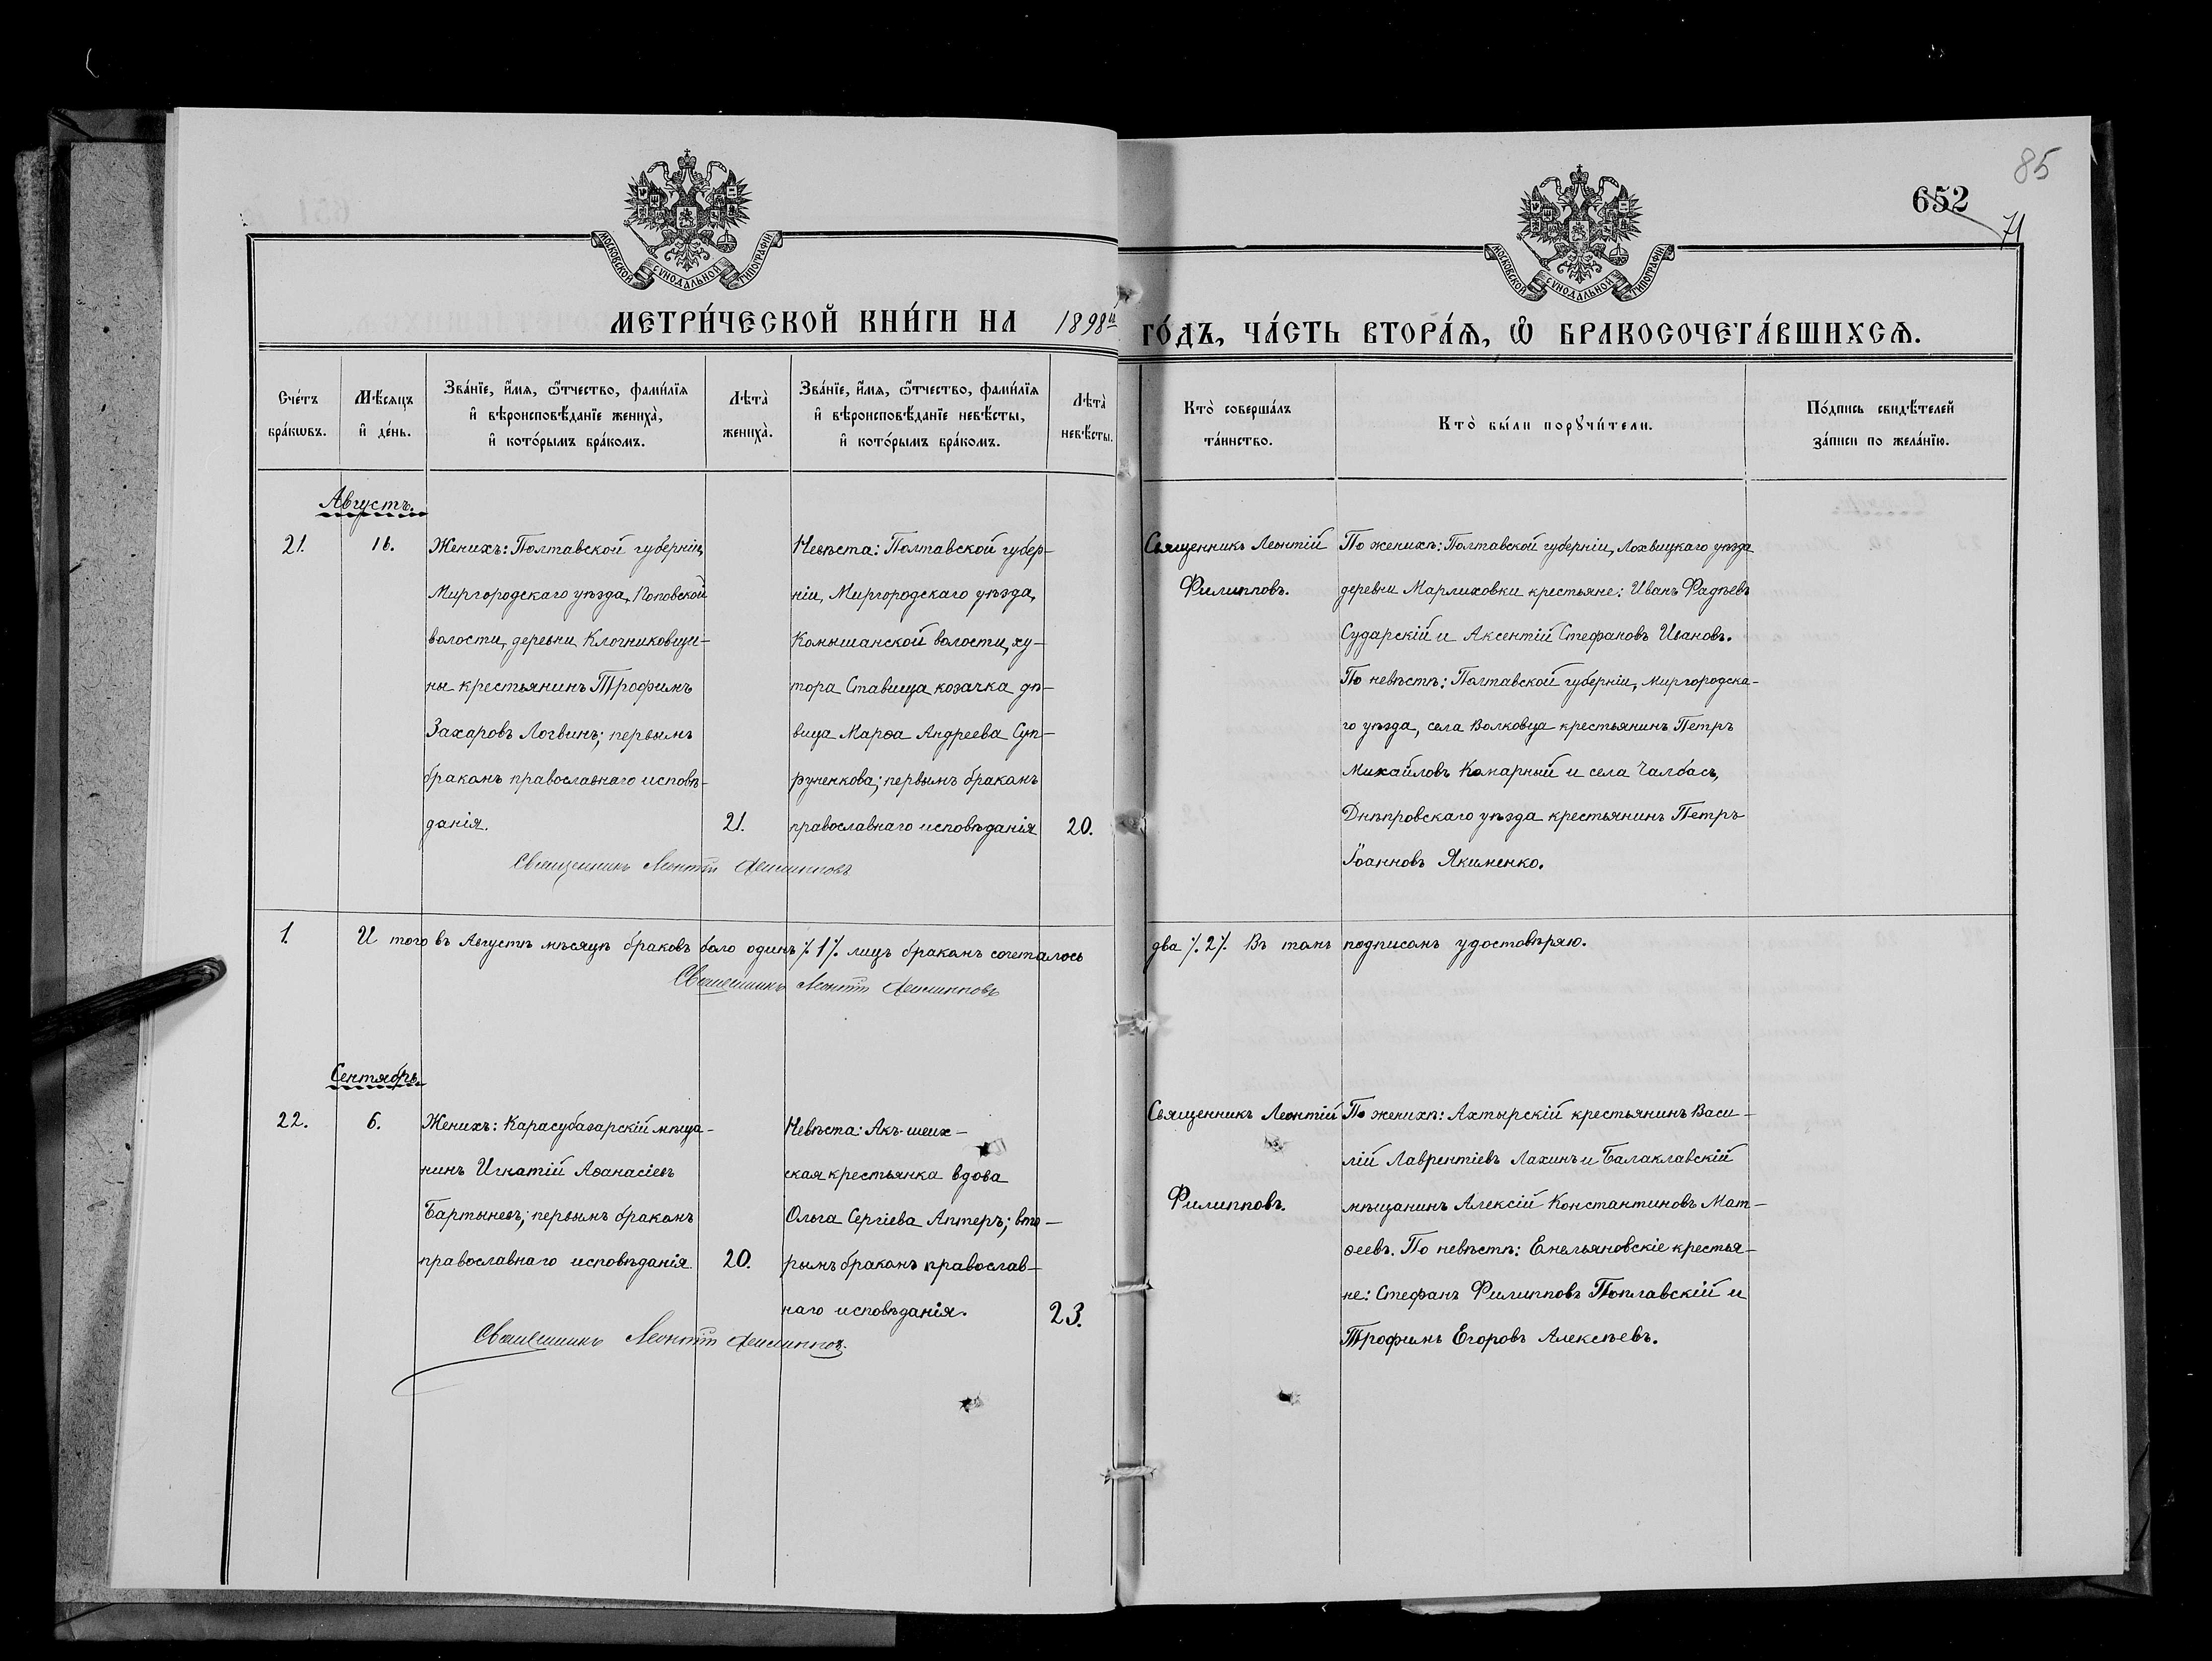 МОСКОВСКОЙ СѴНОДАЛЬНОЙ ТИПОГРАФІИ
МОСКОВСКОЙ СѴНОДАЛЬНОЙ ТИПОГРАФІИ
85
652
71
МЕТРИ́ЧЕСКОЙ КНИ́ГИ НА 1898й ГО́ДЪ, ЧА́СТЬ ВТОРА́Ѧ, Ѡ҆ БРАКОСОЧЕТА́ВШИХСѦ.
Сче́тъ
бра́кѡвъ.
Мѣ́сяцъ
и҆ де́нь.
Зва́нїе, и҆́мя, ѻ҆́тчество, фами́лїя
и҆ вѣроисповѣ́данїе жениха̀,
и҆ кото́рымъ бра́комъ.
Лѣта̀
жениха̀.
Зва́нїе, и҆́мя, ѻ҆́тчество, фами́лїя
и҆ вѣроисповѣ́данїе невѣ́сты,
и҆ кото́рымъ бра́комъ.
Лѣта̀
невѣ́сты.
Кто̀ соверша́лъ
та́инство.
Кто̀ бы́ли порꙋчи́тели.
По́дпись свидѣ́телей
за́писи по жела́нїю.
Августъ.
21.
16.
Женихъ: Полтавской губерніи,
Миргородскаго уѣзда, Поповской
волости, деревни Клочниковщи-
ны крестьянинъ Трофимъ
Захаровъ Логвинъ; первымъ
бракомъ православнаго исповѣ-
данія.
21.
Невѣста: Полтавской губер-
ніи, Миргородскаго уѣзда,
Комышанской волости, ху-
тора Ставища козачка дѣ-
вица Марѳа Андреева Суп-
руненкова; первымъ бракомъ
православнаго исповѣданія
20.
Священникъ Леонтій
Филипповъ.
По женихѣ: Полтавской губерніи, Лохвицкаго уѣзда
деревни Марлиховки крестьяне: Иванъ Фадѣевъ
Сударскій и Аксентій Стефановъ Ивановъ.
По невѣстѣ: Полтавской губерніи, Миргородска-
го уѣзда, села Волковца крестьянинъ Петръ
Михайловъ Комарный и села Чалбасъ,
Днѣпровскаго уѣзда крестьянинъ Петръ
Іоанновъ Якименко.
Священникъ Леонтій Филипповъ
1.
И того въ Августѣ мѣсяцѣ браковъ было одинъ ٪1٪ лицъ бракомъ сочеталось два ٪2٪ Въ томъ подписомъ удостовѣряю.
Священникъ Леонтій Филипповъ
Сентябрь.
22.
6.
Женихъ: Карасубазарскій мѣща-
нинъ Игнатій Аѳанасіевъ
Бартыневъ; первымъ бракомъ
православнаго исповѣданія
20.
Невѣста: Акъ-шеих-
ская крестьянка вдова
Ольга Сергіева Аптеръ; вто-
рымъ бракомъ православ-
наго исповѣданія.
23.
Священникъ Леонтій
Филипповъ.
По женихѣ: Ахтырскій крестьянинъ Васи-
лій Лаврентіевъ Лахинъ и Балаклавскій
мѣщанинъ Алексій Константиновъ Мат-
ѳеевъ. По невѣстѣ: Емельяновскіе крестья-
не: Стефанъ Филипповъ Поплавскій и
Трофимъ Егоровъ Алексѣевъ.
Священникъ Леонтій Филипповъ.